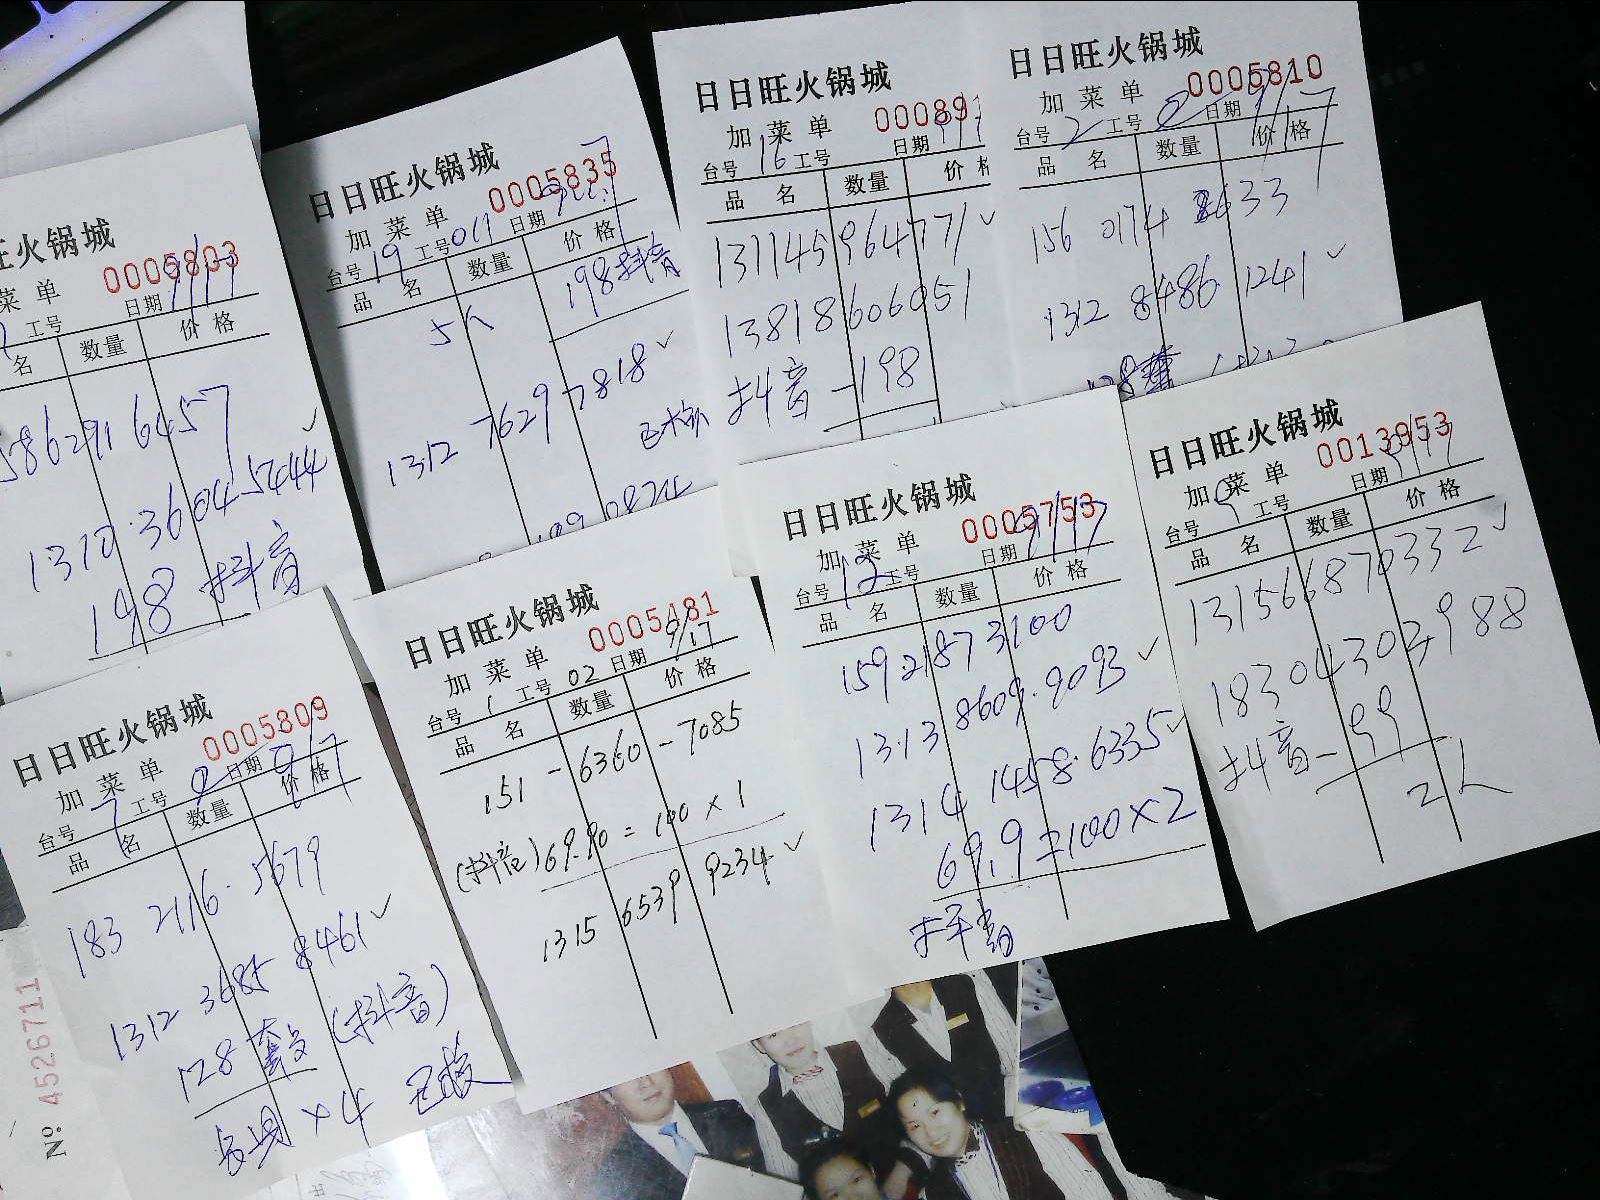 旺火锅城
0005803
菜单
日期 9/17
工号
名 数量 价格
58629116457
1310 3604 5444
198 抖音
日日旺火锅城
0005835
加菜单
台号 19 工号 011 日期
品名 数量 价格
5人 198抖音
1312 7629 7818
日日旺火锅城
000891
加菜单
台号 16 工号 日期
品名 数量 价格
13114596477
13818606051
抖音-198
日日旺火锅城
0005810
加菜单
台号 2 工号 2 日期 9/17
品名 数量 价格
156 0174 8633
1312 8486 1241
日日旺火锅城
0005809
加菜单
台号 7 工号 日期 9/17
品名 数量 价格
183 2116 5679
1312 3685 8461
128套 (抖音)
×4
日日旺火锅城
0005481
加菜单
台号 1 工号 02 日期 9/17
品名 数量 价格
151-6360-7085
(抖音) 69.90=100×1
1315 6539 9234
日日旺火锅城
0005753
加菜单
台号 12 工号 日期 9/17
品名 数量 价格
159.21873100
1313 8609.9093
1314 1458.6335
69.9=100×2
抖音
日日旺火锅城
0013953
加菜单
台号 9 工号 日期 9/17
品名 数量 价格
131566870332
18304302988
抖音-99
2人
№ 4526711